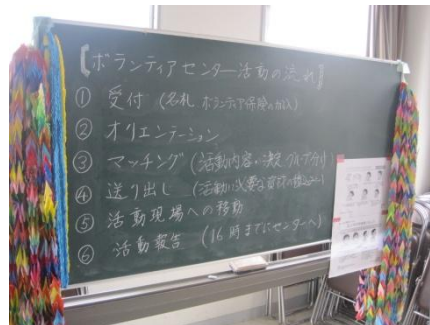 【ボランティアセンター活動の流れ】
① 受付 (名札、ボランティア保険の加入)
② オリエンテーション
③ マッチング (活動内容の決定、グループ分け)
④ 送り出し (活動に必要な資材の
⑤ 活動現場への移動
⑥ 活動報告 (16時までにセンターへ)